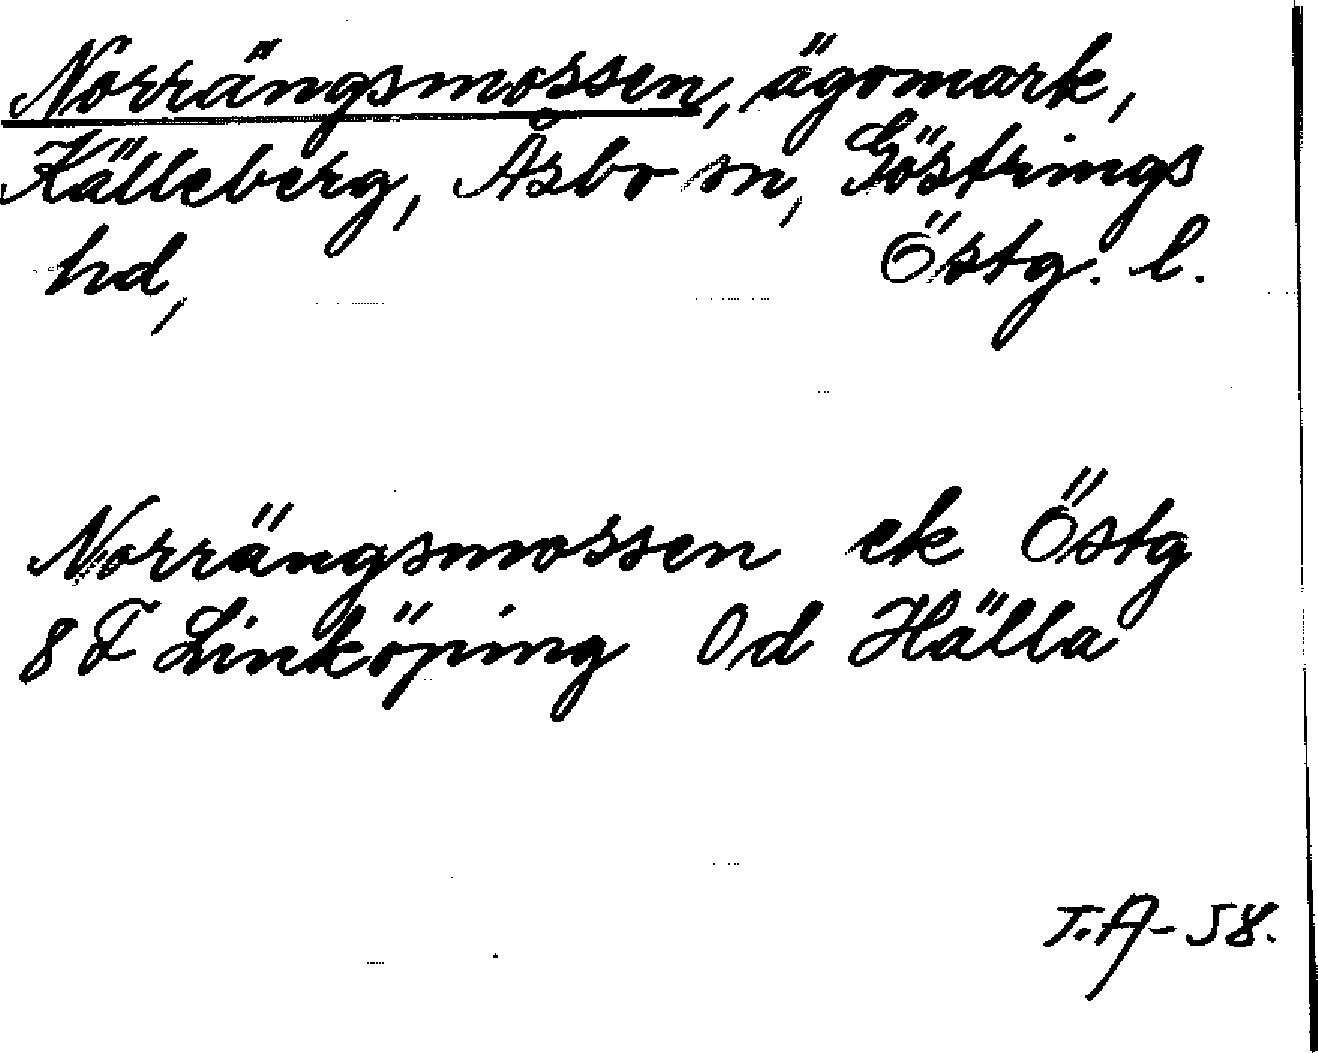 Norrängsmossen, ägomark,
Källeberg, Åsbo sn, Göstrings
hd, Östg. l.
Norrängsmossen ek Östg
8 F Linköping 0d Hälla
T.A-58.